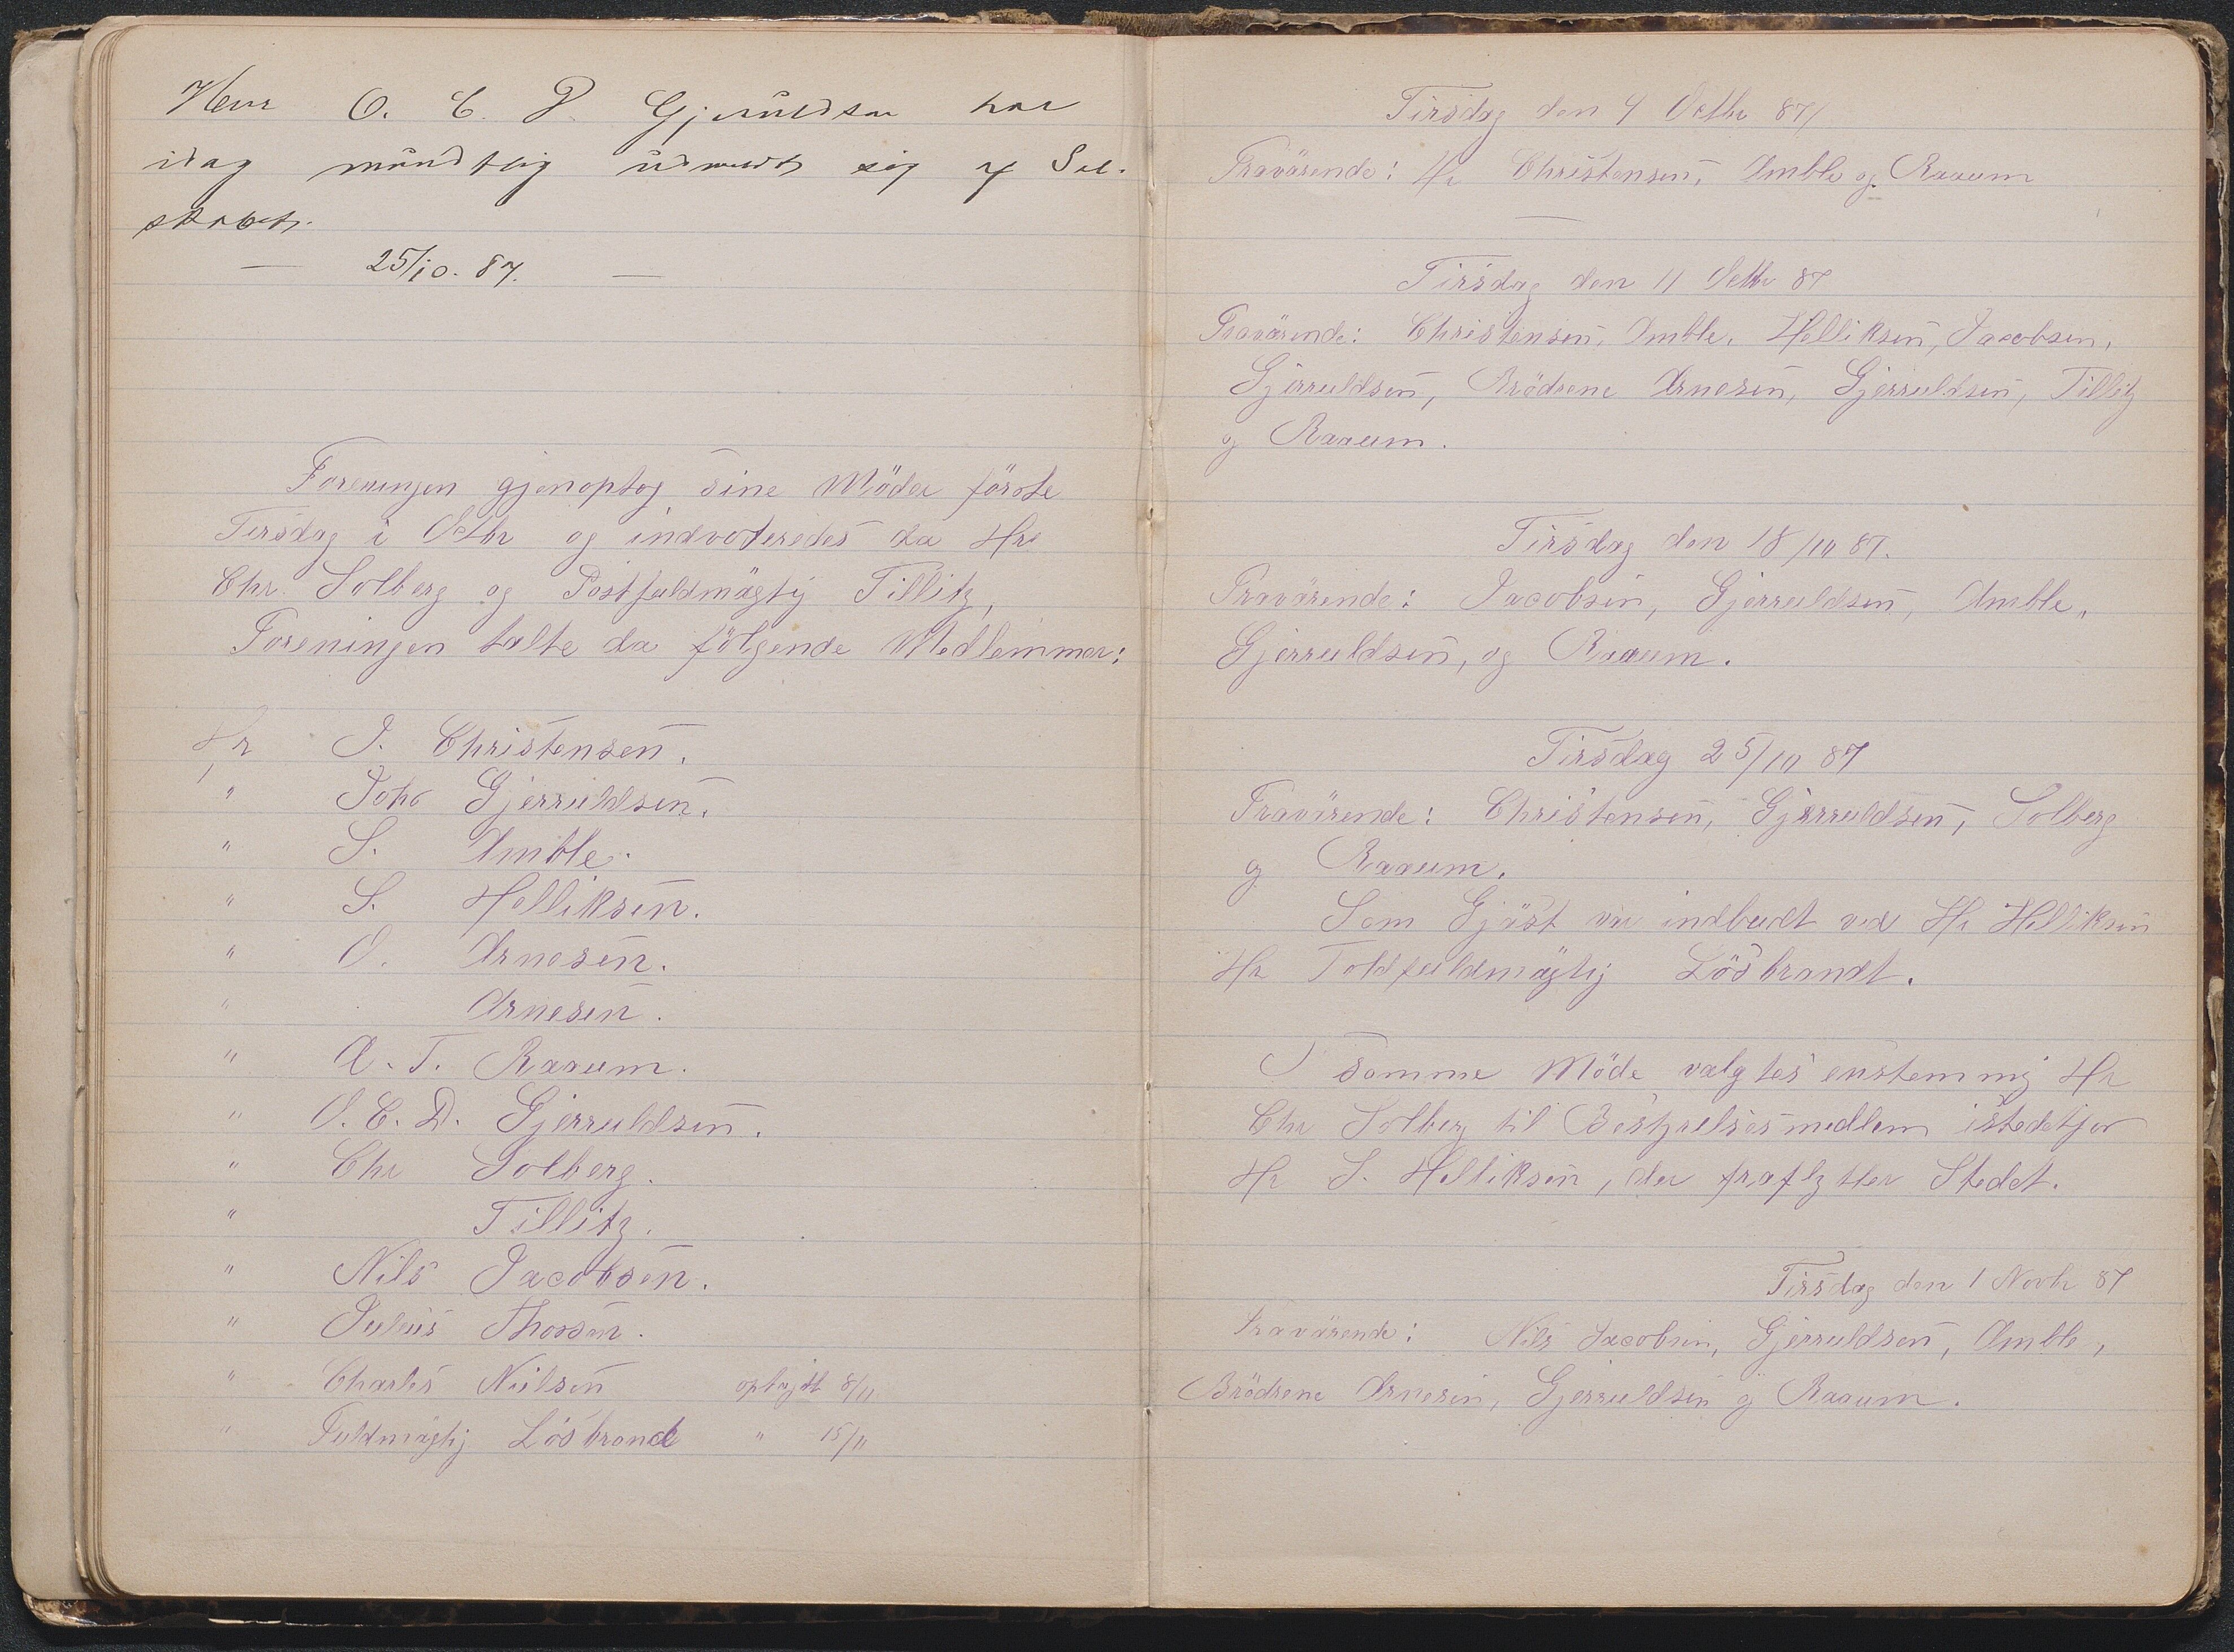 Herr O. C. D. Gjeruldsen har
idag mündtlig üdmeldt sig af Sel-
skabet.
— 25/10. 87. —
Foreningen gjenoptog sine Möder förste
Tirsdag i Octbr og indvoteredes da Hrr
Chr. Solberg og Postfuldmägtig Tillitz,
Foreningen talte da fölgende Medlemmer:
Hr J. Christensen.
" Johs Gjerruldsen.
" S. Amble.
" S. Helliksen.
" O. Arnesen.
" Arnesen.
" A. T. Raaum.
" O. C. D. Gjerruldsen.
" Chr Solberg.
" Tillitz.
" Nils Jacobsen.
" Julius Thorsen.
" Charles Nielsen optagdt 8/11
" Fuldmägtig Lösbrand " 15/11
Tirsdag den 4 Octbr 87/
Fravärende: Hr Christensen, Amble og Raaum
Tirsdag den 11 Octbr 87
Fravärende: Christensen, Amble, Helliksen, Jacobsen,
Gjerruldsen, Brödrene Arnesen, Gjerruldsen, Tillitz
og Raaum.
Tirsdag den 18/10 87.
Fravärende: Jacobsen, Gjerruldsen, Amble,
Gjerruldsen, og Raaum.
Tirsdag 25/10 87
Fravärende: Christensen, Gjerruldsen, Solberg
og Raaum.
Som Gjäst var indbudt ved Hr Helliksen
Hr Toldfuldmägtig Lösbrandt.
I samme Möde valgtes enstemmig Hr
Chr Solberg til Bestyrelsesmedlem istedetfor
Hr S. Helliksen, der fraflytter Stedet.
Tirsdag den 1 Novbr 87
Fravärende: Nils Jacobsen, Gjerruldsen, Amble,
Brödrene Arnesen, Gjerruldsen og Raaum.